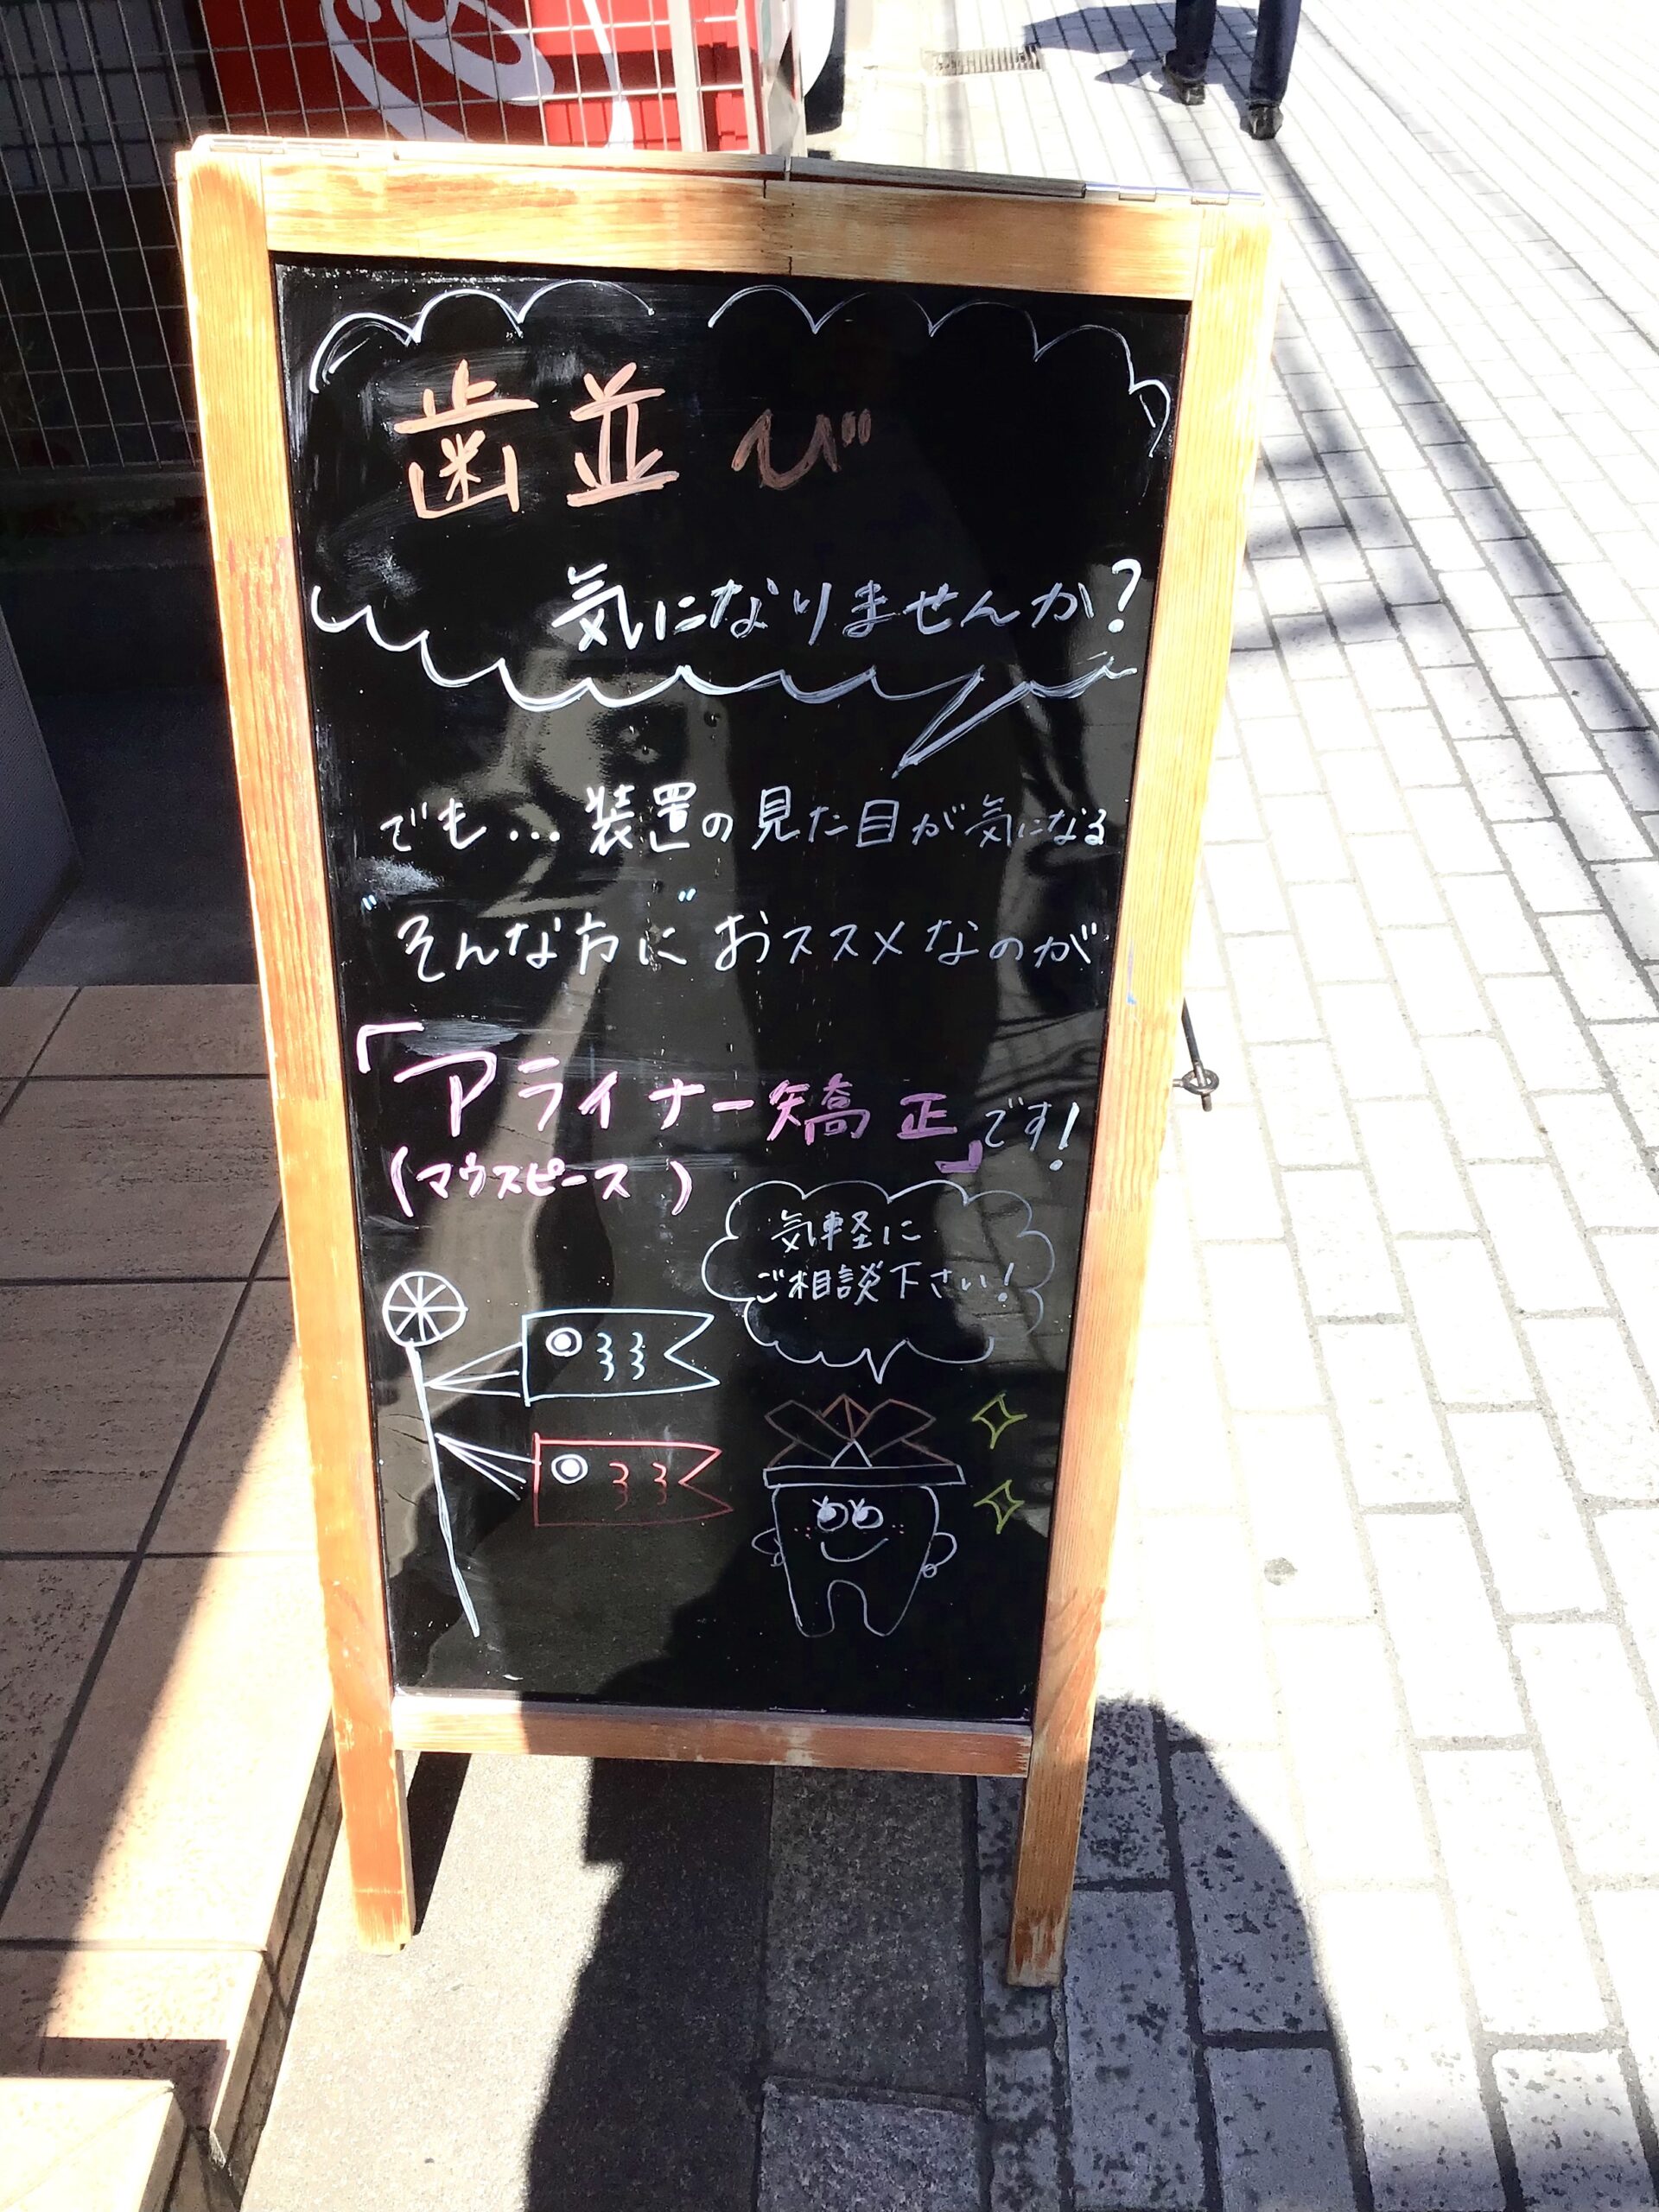 歯並び
気になりませんか?
でも…装置の見た目が気になる
"そんな方に"おススメなのが
「アライナー矯正」です!
(マウスピース)
気軽に
ご相談下さい!